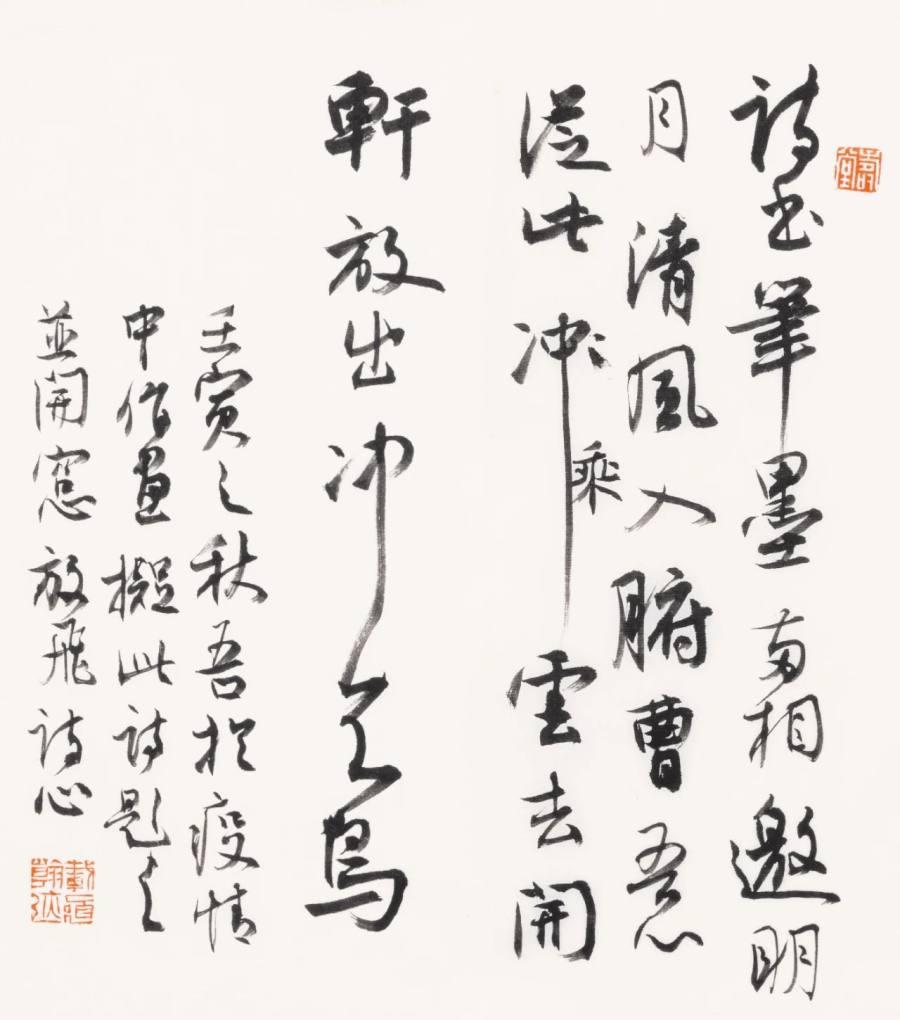 詩書筆墨兩相邀明
月清風入腑曹吾心
從此冲乘雲去開
軒放出冲天鳥
壬寅之秋吾於疫情
中作畫擬此詩題之
並開窓放飛詩心